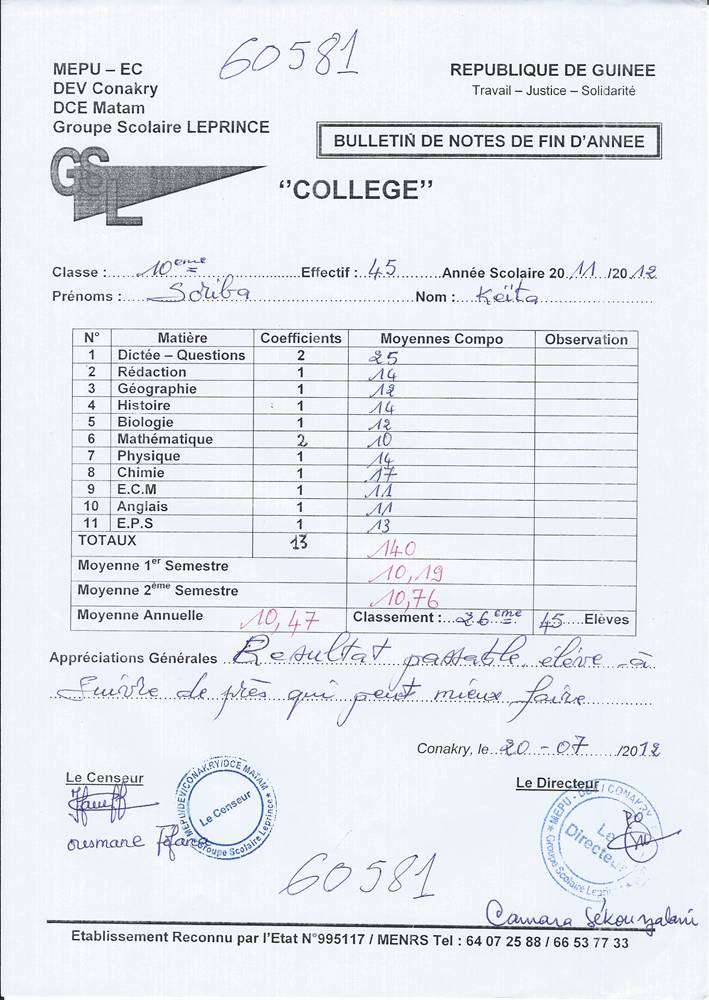 60581
MEPU – EC
DEV Conakry
DCE Matam
Groupe Scolaire LEPRINCE
REPUBLIQUE DE GUINEE
Travail – Justice – Solidarité
BULLETIN DE NOTES DE FIN D'ANNEE
GSL
‘‘COLLEGE’’
Classe : 10ème Effectif : 45 Année Scolaire 2011/2012
Prénoms : Soriba Nom : Keïta
N° Matière Coefficients Moyennes Compo Observation
1 Dictée – Questions 2 25
2 Rédaction 1 14
3 Géographie 1 12
4 Histoire 1 14
5 Biologie 1 12
6 Mathématique 2 10
7 Physique 1 14
8 Chimie 1 17
9 E.C.M 1 11
10 Anglais 1 11
11 E.P.S 1 13
TOTAUX 13 140
Moyenne 1er Semestre 10,19
Moyenne 2ème Semestre 10,76
Moyenne Annuelle 10,47 Classement : 26ème 45 Elèves
Appréciations Générales Resultat passable élève à
suivre de près qui peut mieux faire
Conakry, le 20-07/2012
Le Censeur
Le Directeur
MEPU/DEV/CONAKRY/DCE MATAM
Le Censeur
Groupe Scolaire Leprince
MEPU - DEV CONAKRY
Le Directeur
Groupe Scolaire
PO
ousmane
60581
Camara Sékou
Etablissement Reconnu par l'Etat N°995117 / MENRS Tel : 64 07 25 88 / 66 53 77 33